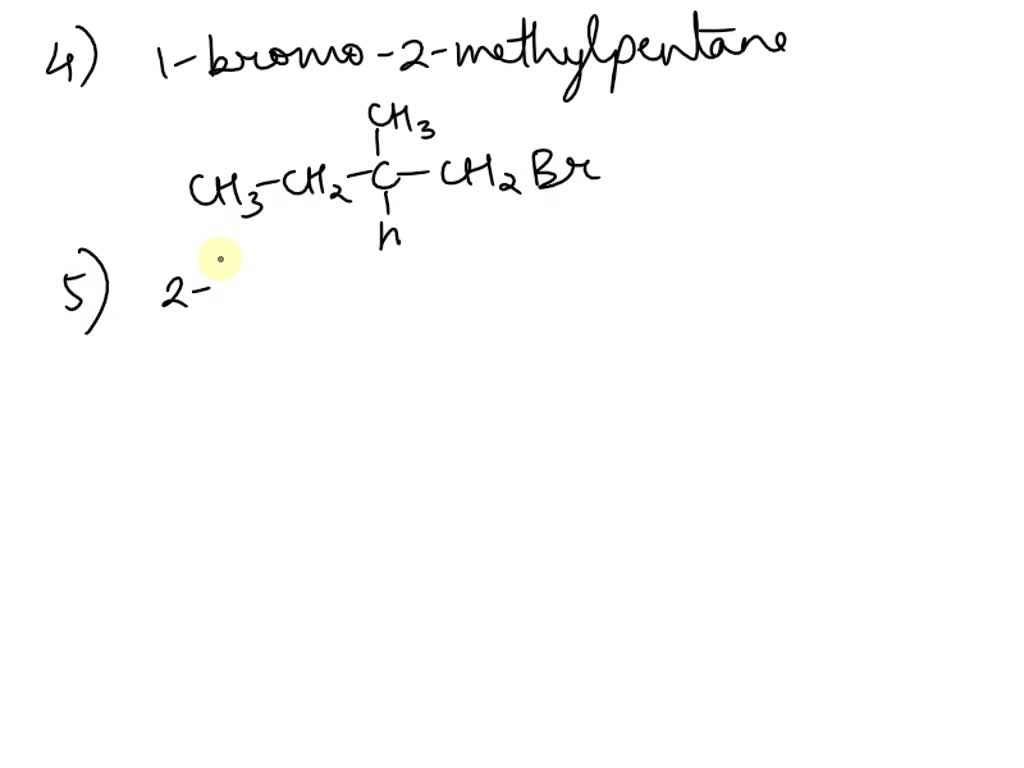 4) 1-bromo-2-methylpentane
CH3
CH3-CH2-C-CH2Br
H
5) 2-